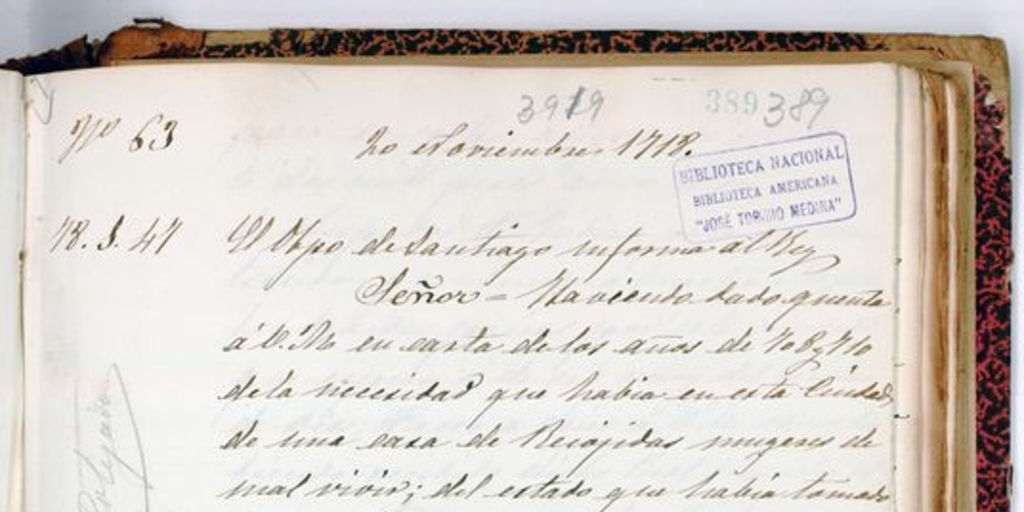 3919
389 389
Nº 63
20 Noviembre 1718.
BIBLIOTECA NACIONAL
BIBLIOTECA AMERICANA
"JOSÉ TORIBIO MEDINA"
78. 3. 47
El Obpo de Santiago informa al Rey
Señor = Haviendo dado quenta
á V. M en carta de los años de 708 y 710
de la necesidad que habia en esta Ciudad
de una casa de Recojidas mugeres de
mal vivir; del estado que habia tomado